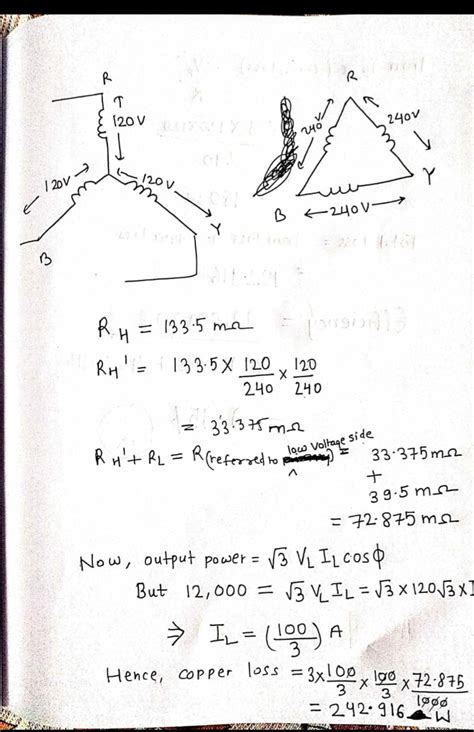 R
120V
120V
120V
B
Y
R
240V
240V
B
Y
240V
R_H = 133.5 mΩ
R_H' = 133.5 × 120/240 × 120/240
= 33.375 mΩ
R_H' + R_L = R (referred to low voltage side) = 33.375 mΩ
+
39.5 mΩ
= 72.875 mΩ
Now, output power = √3 V_L I_L cosφ
But 12,000 = √3 V_L I_L = √3 × 120√3 × I
⇒ I_L = (100/3) A
Hence, copper loss = 3 × 100/3 × 100/3 × 72.875/1000
= 242.916 W